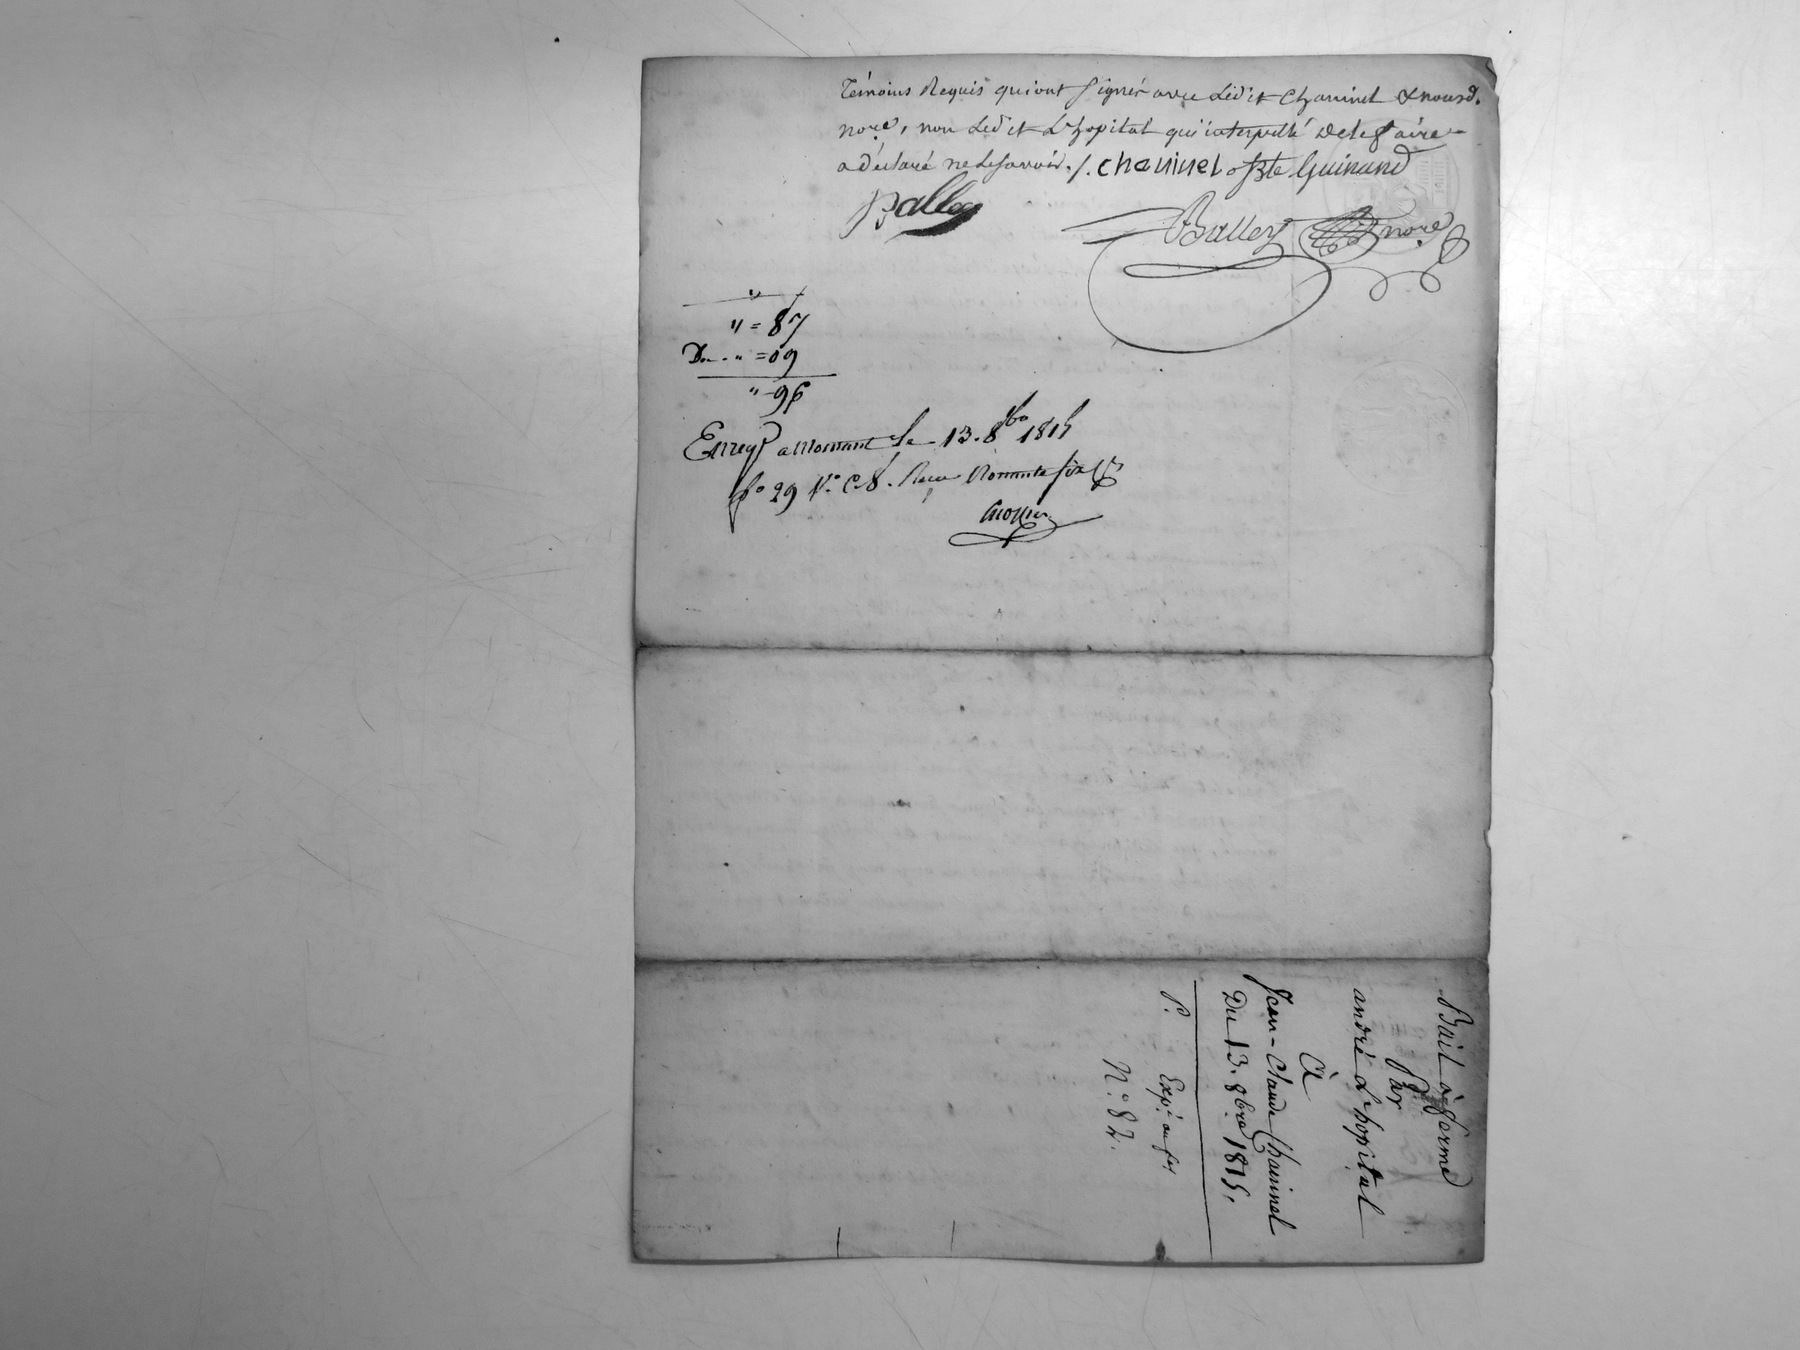 témoins Requis qui ont signés avec Ledit Chaninel & nousd.
nore, non Ledit L'hopital qui interpellé de le faire
a déclaré ne le savoir ./. chaninel Bte Guinand
Balley
Balley nore
" = 87
" = 09
" 96
Enregt a le 13. 8bre 1815
fo 29 Vo C. 8. Recu
Bail à ferme
Par
andré L'hopital
à
Jean-Claude Chaninel
Du 13. 8bre 1815.
P. Expé.
N° 82.